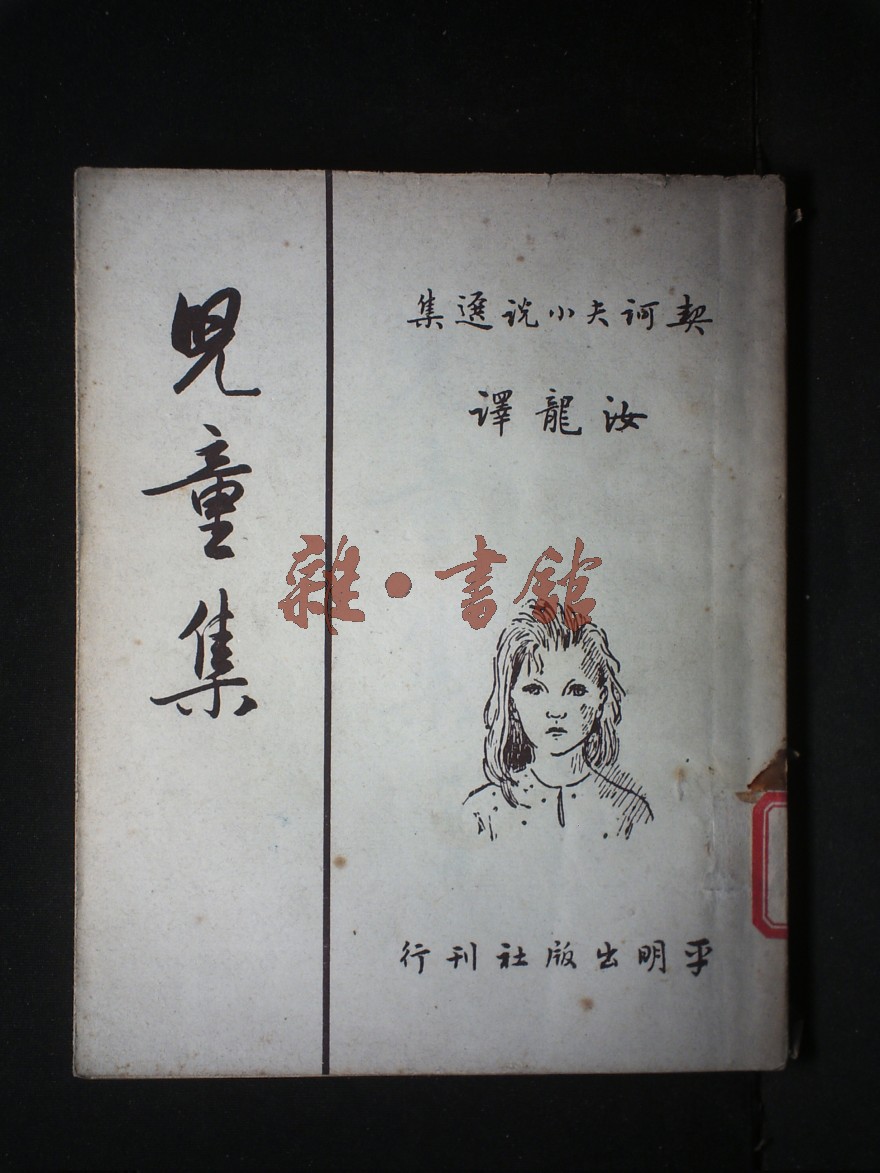 契訶夫小說選集
汝龍譯
兒童集
雜·書館
平明出版社刊行